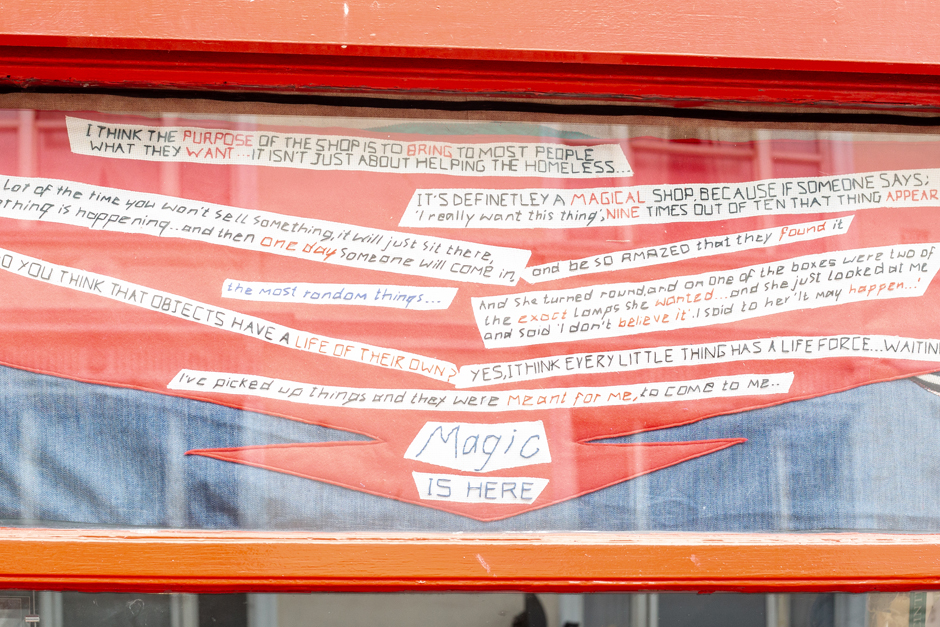 I THINK THE PURPOSE OF THE SHOP IS TO BRING TO MOST PEOPLE
WHAT THEY WANT...IT ISN'T JUST ABOUT HELPING THE HOMELESS...
IT'S DEFINETLEY A MAGICAL SHOP, BECAUSE IF SOMEONE SAYS;
'I really want this thing', NINE TIMES OUT OF TEN THAT THING APPEAR
Lot of the time you won't sell something, it will just sit there,
is happening...and then one day someone will come in,
and be so AMAZED that they found it
the most random things...
And she turned round, and on one of the boxes were two of
the exact lamps she wanted...and she just looked at me
and said 'I don't believe it'. I said to her 'It may happen...!
O YOU THINK THAT OBJECTS HAVE A LIFE OF THEIR OWN?
YES, I THINK EVERY LITTLE THING HAS A LIFE FORCE...WAITIN
I've picked up things and they were meant for me, to come to me..
Magic
IS HERE